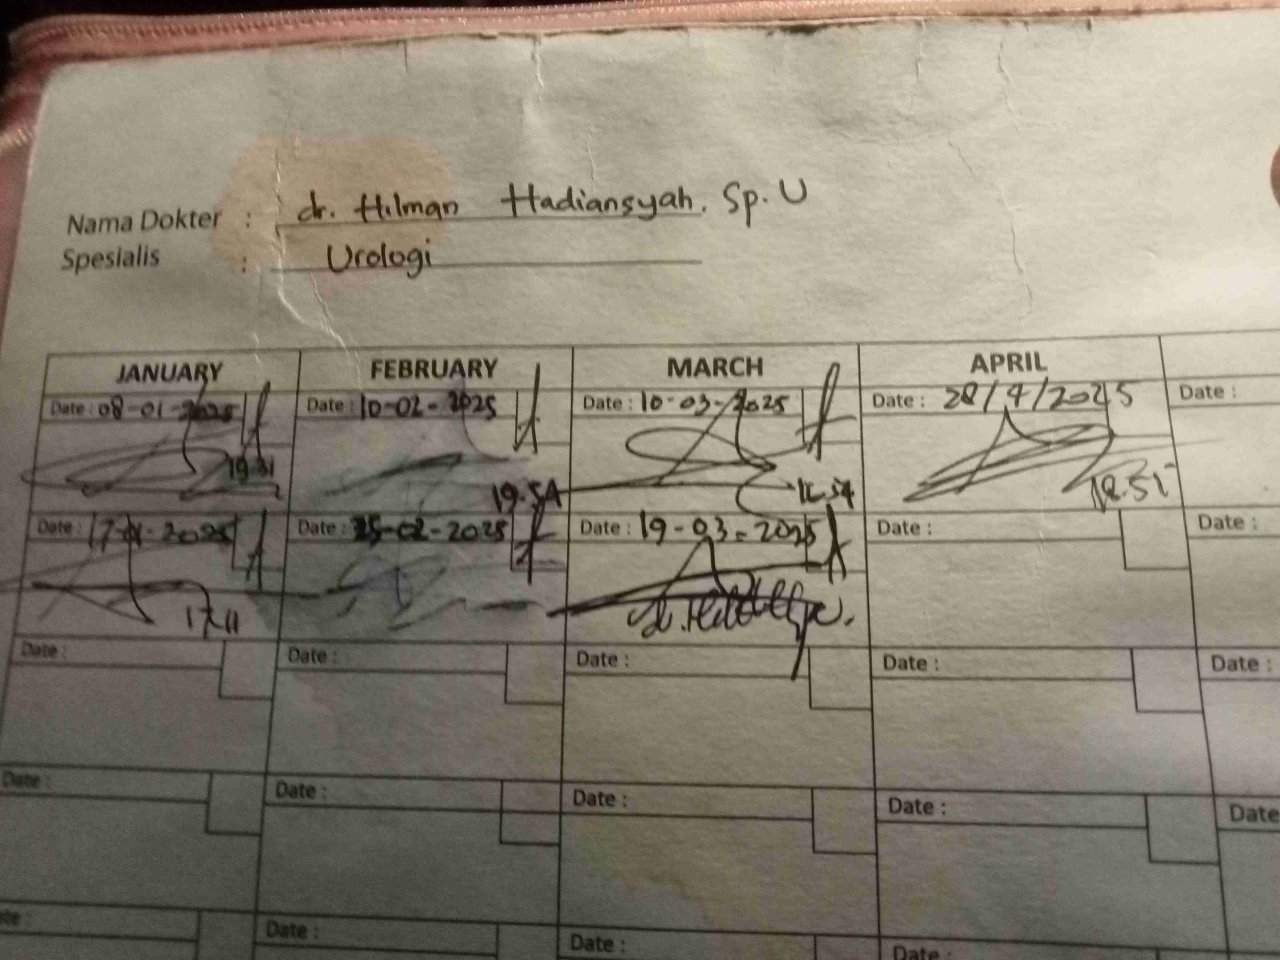 Nama Dokter : dr. Hilman Hadiansyah. Sp. U
Spesialis : Urologi
JANUARY FEBRUARY MARCH APRIL
Date : 08-01-2025 Date : 10-02-2025 Date : 10-03-2025 Date : 28/4/2025 Date :
19.31 19.54 18.51
Date : 17-01-2025 Date : 25-02-2025 Date : 19-03-2025 Date : Date :
17.11
Date : Date : Date : Date : Date :
Date : Date : Date : Date : Date
Date : Date : Date : Date :